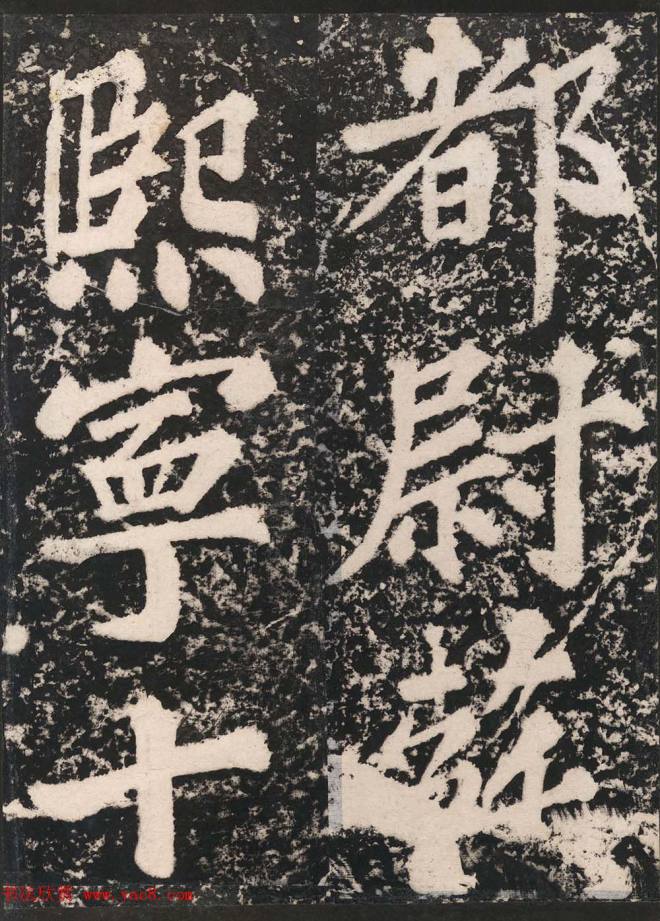 都尉蘇
熙寧十
书法欣赏 www.yac8.com